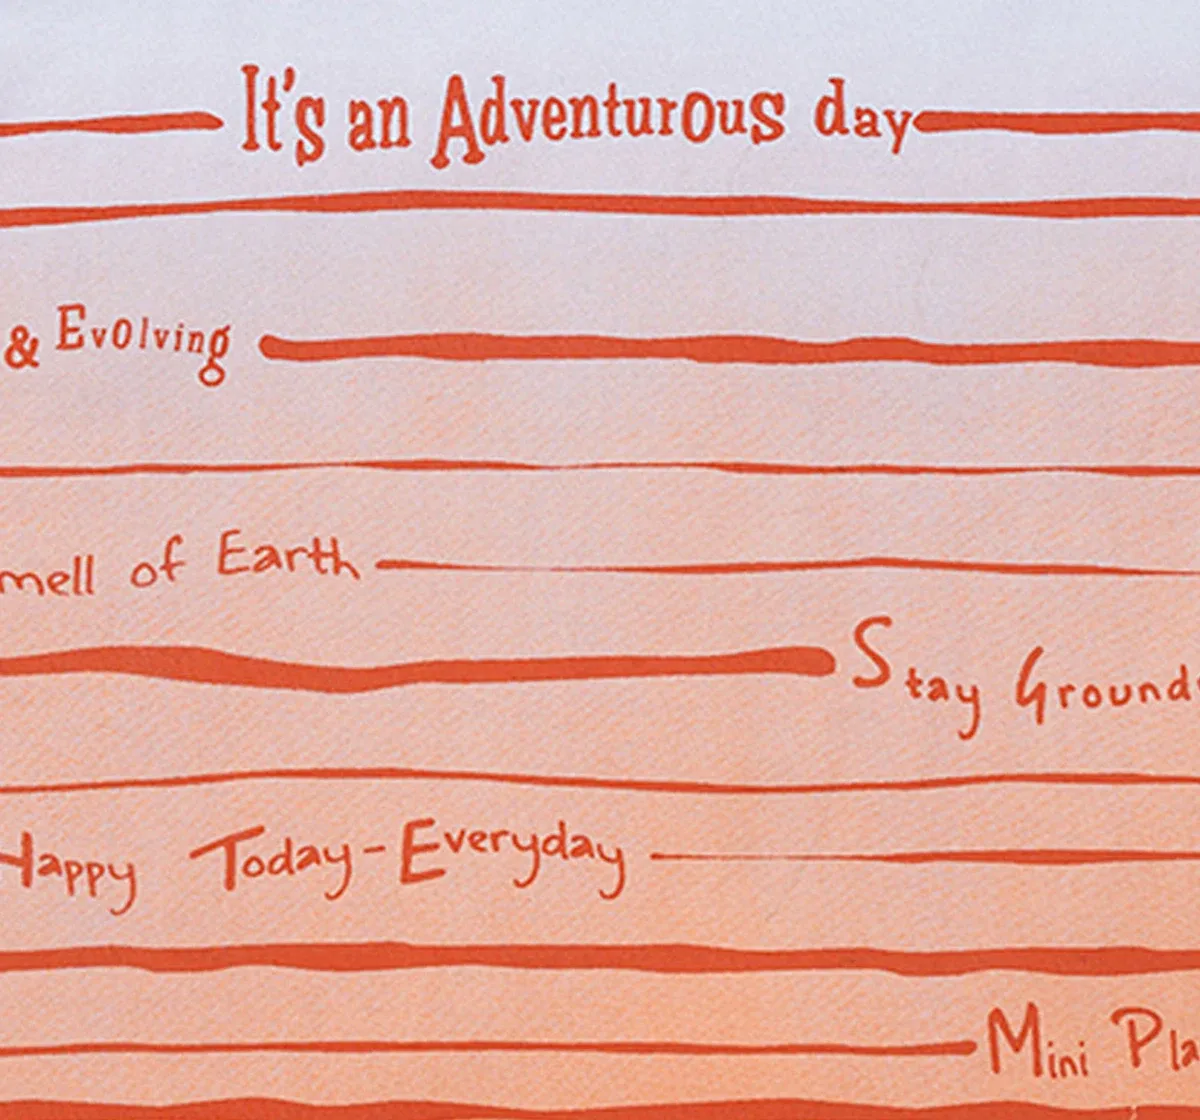 It's an Adventurous day
& Evolving
of Earth
Stay
Happy Today-Everyday
Mini